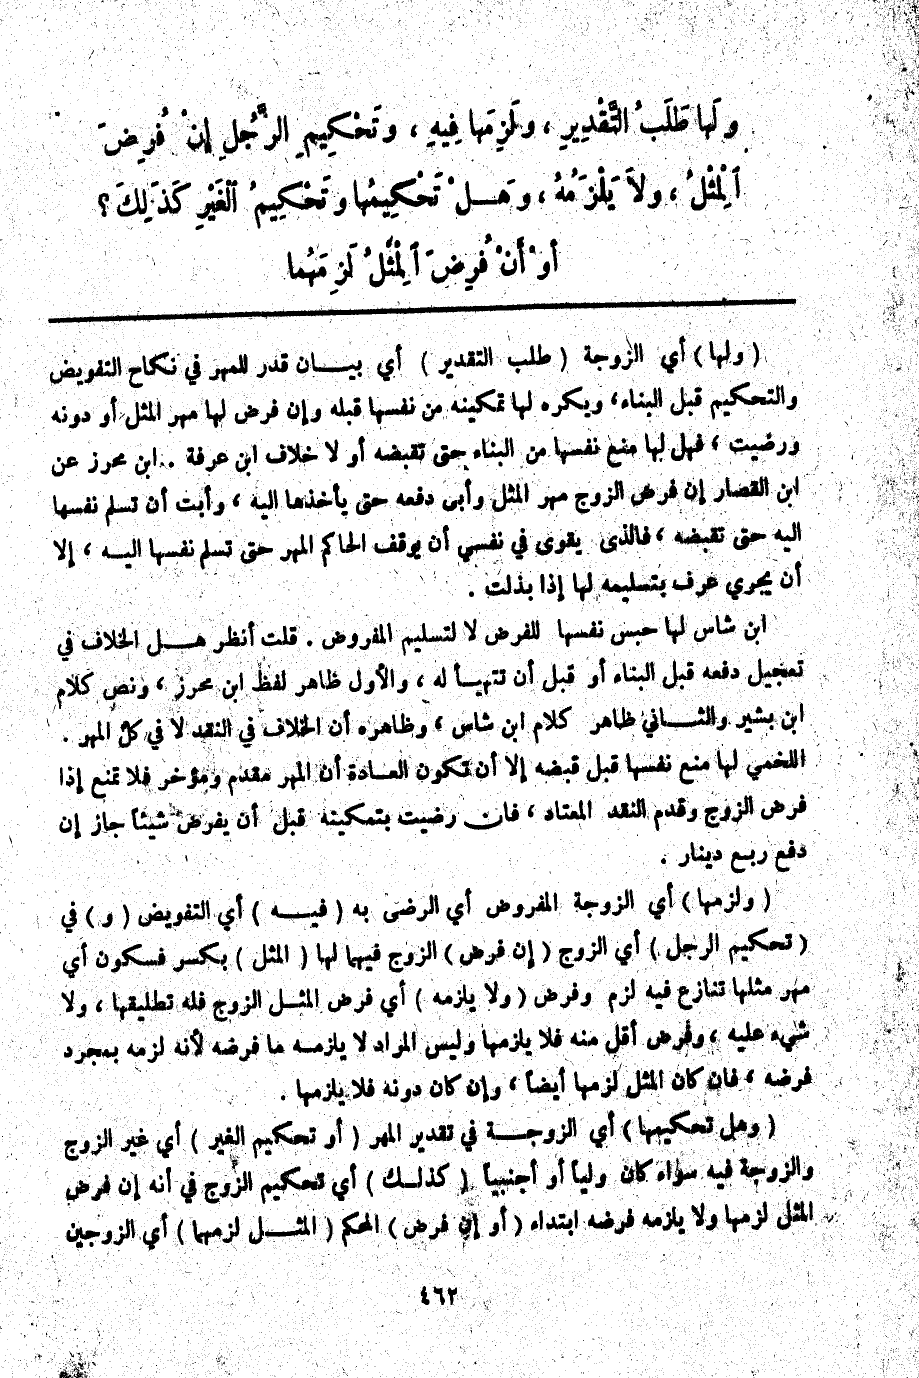 وَلَها طَلَبُ التَّقْدِيرِ ، وَلَزِمَها فِيهِ ، وَتَحْكِيمِ الرَّجُلِ إِنْ فُرِضَ
اَلْمِثْلُ ، وَلاَ يَلْزَمُهُ ، وَهَـلْ تَحْكِيمُها وَتَحْكِيمُ اَلْغَيْرِ كَذَلِكَ ؟
أَوْ أَنْ فُرِضَ اَلْمِثْلُ لَزِمَهُما
( ولها ) أي الزوجة ( طلب التقدير ) أي بيـان قدر للمهر في نكاح التفويض
والتحكيم قبل البناء، ويكره لها تمكينه من نفسها قبله وإن فرض لها مهر المثل أو دونه
ورضيت ، فهل لها منع نفسها من البناء حتى تقبضه أو لا خلاف ابن عرفة .. ابن محرز عن
ابن القصار إن فرض الزوج مهر المثل وأبى دفعه حتى يأخذها اليه ، وأبت أن تسلم نفسها
اليه حتى تقبضه ، فالذى يقوى في نفسي أن يوقف الحاكم المهر حتى تسلم نفسها اليـه ، إلا
أن يجري عرف بتسليمه لها إذا بذلت .
ابن شاس لها حبس نفسها للفرض لا لتسليم المفروض . قلت أنظر هـل الخلاف في
تعجيل دفعه قبل البناء أو قبل أن تتهيـأ له ، والأول ظاهر لفظ ابن محرز ، ونص كلام
ابن بشير والثـاني ظاهر كلام ابن شاس ، وظاهره أن الخلاف في النقد لا في كلّ المهر .
اللخمي لها منع نفسها قبل قبضه إلا أن تكون العـادة أن المهر مقدم ومؤخر فلا تمنع إذا
فرض الزوج وقدم النقد المعتاد ، فان رضيت بتمكينه قبل أن يفرض شيئاً جاز إن
دفع ربـع دينار .
( ولزمها ) أي الزوجة المفروض أي الرضى به ( فيـه ) أي التفويض ( و ) في
( تحكيم الرجل ) أي الزوج ( إن فرض ) الزوج فيهما لها ( المثل ) بكسر فسكون أي
مهر مثلها تنازع فيه لزم وفرض ( ولا يلزمه ) أي فرض المثـل الزوج فله تطليقها ، ولا
شيء عليه ، وفرض أقل منه فلا يلزمها وليس المراد لا يلزمـه ما فرضه لأنه لزمه بمجرد
فرضه ، فان كان المثل لزمها أيضاً ، وإن كان دونه فلا يلزمها .
( وهل تحكيمها ) أي الزوجـة في تقدير المهر ( أو تحكيم الغير ) أي غير الزوج
والزوجة فيه سواء كان ولياً أو أجنبياً ( كذلـك ) أي تحكيم الزوج في أنه إن فرض
المثل لزمها ولا يلزمه فرضه ابتداء ( أو إن فرض ) المحكم ( المثـل لزمهما ) أي الزوجين
٤٦٢